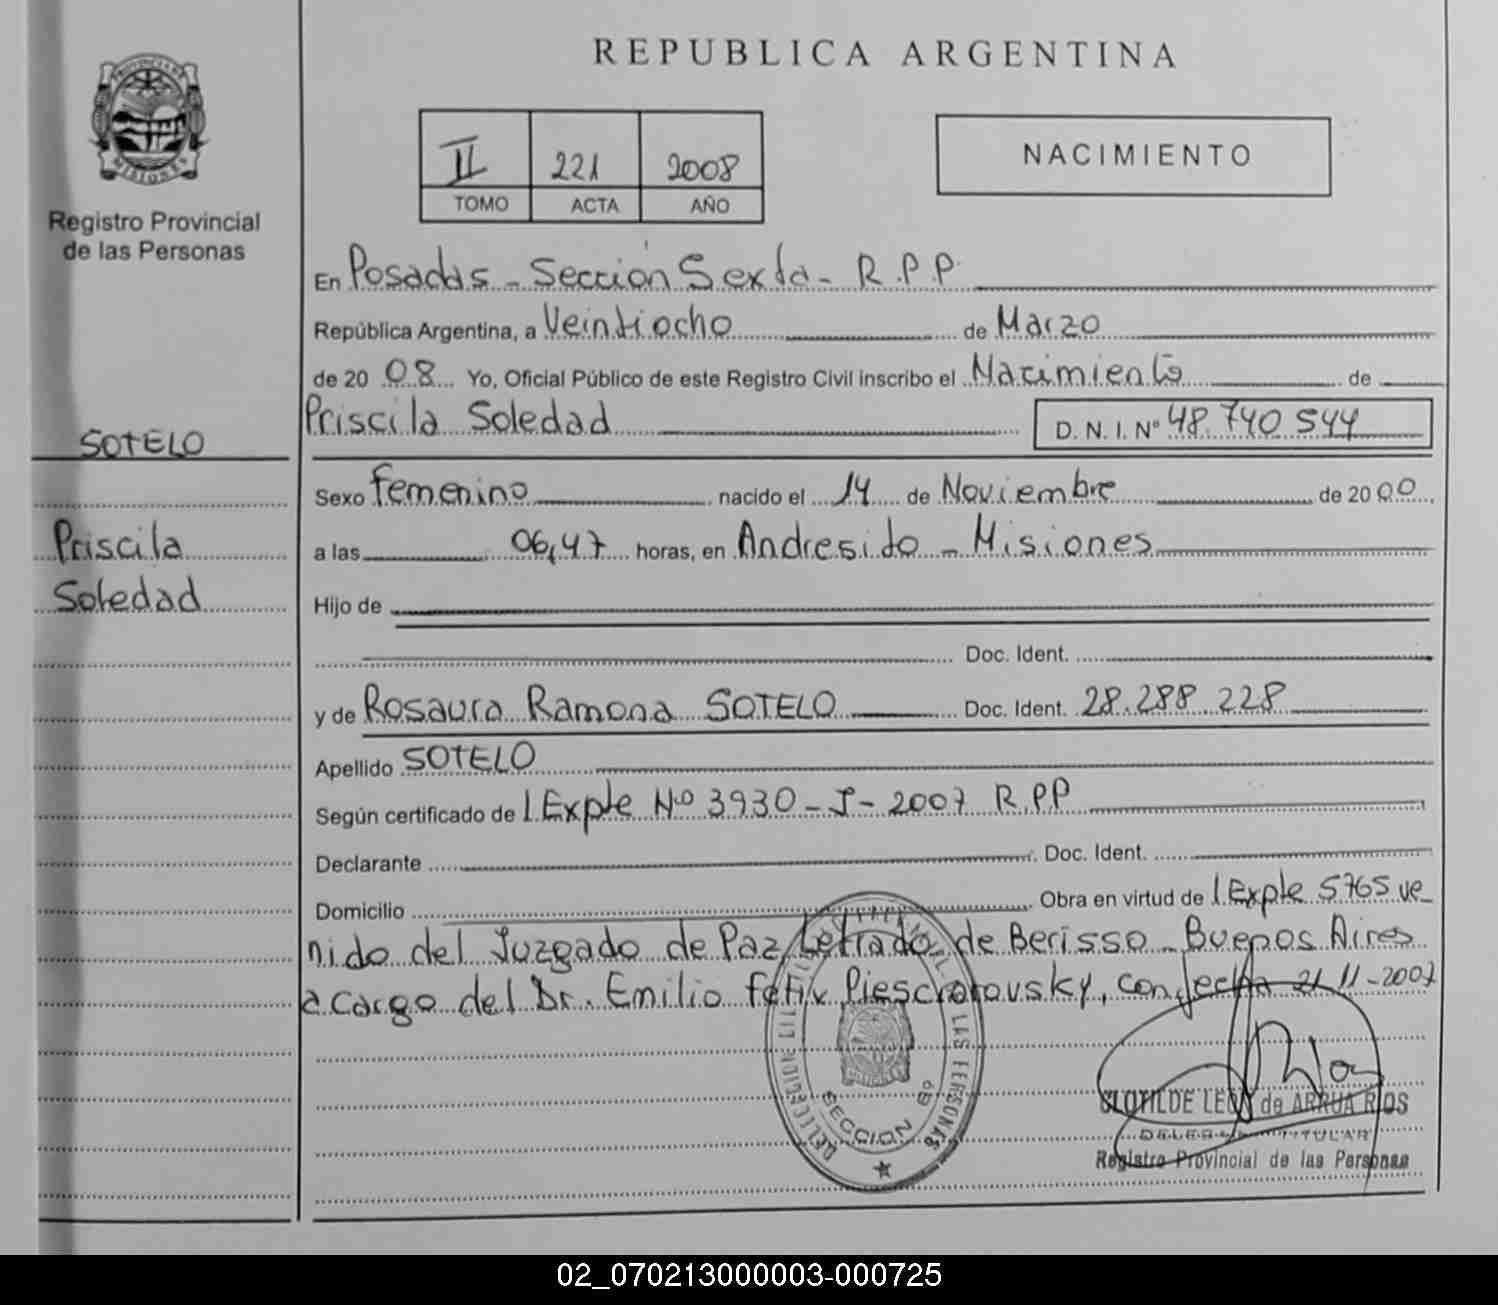 REPUBLICA ARGENTINA
PROVINCIA DE
MISIONES
Registro Provincial
de las Personas
II 221 2008
TOMO ACTA AÑO
NACIMIENTO
En Posadas - Sección Sexta - R.P.P.
República Argentina, a Veintiocho de Marzo
de 20 08 Yo, Oficial Público de este Registro Civil inscribo el Nacimiento de
Priscila Soledad D. N. I. Nº 48.740.544
SOTELO
Priscila
Soledad
Sexo Femenino nacido el 14 de Noviembre de 20 00
a las 06,47 horas, en Andresito - Misiones
Hijo de
Doc. Ident.
y de Rosaura Ramona SOTELO Doc. Ident. 28.288.228
Apellido SOTELO
Según certificado de Expte Nº 3930 - J - 2007 R.P.P
Declarante Doc. Ident.
Domicilio Obra en virtud de Expte 5765 ve
nido del Juzgado de Paz Letrado de Berisso - Buenos Aires
a cargo del Dr. Emilio Felix con fecha 21-11-2007
LAS PERSONAS
SECCION 6º
CLOTILDE LEON de ARRUA RIOS
DELEGADA TITULAR
Registro Provincial de las Personas
02_070213000003-000725